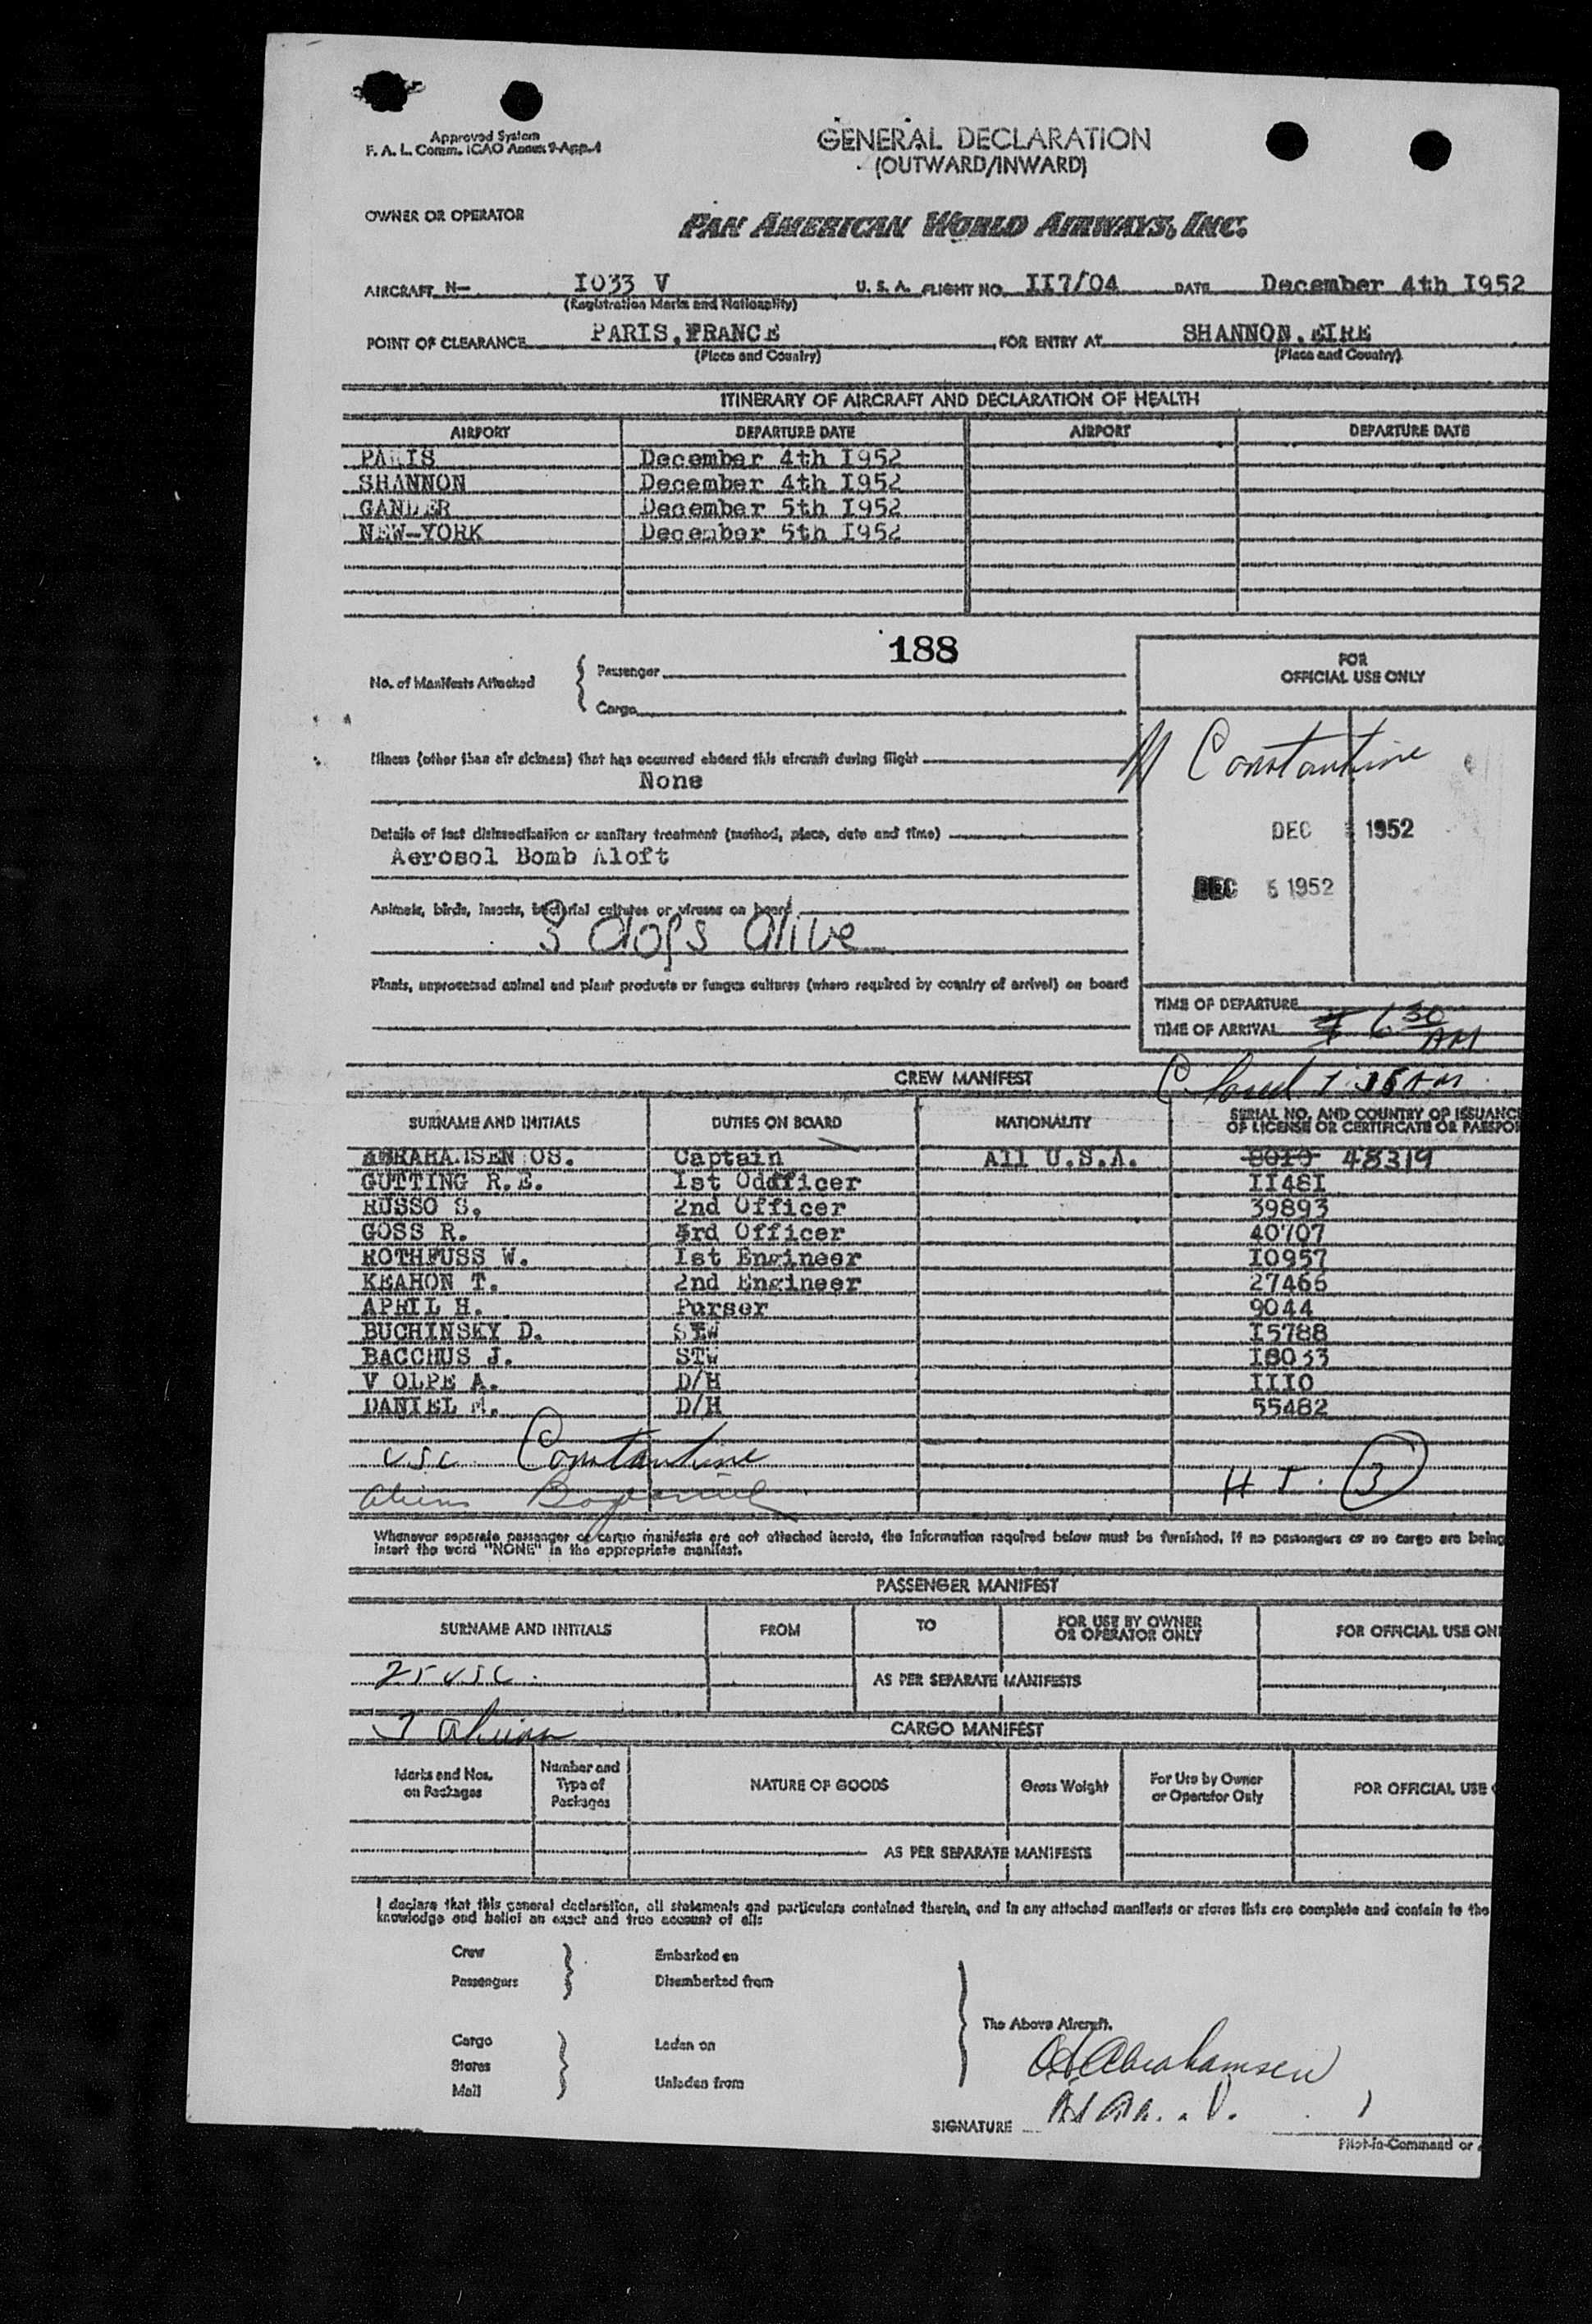 Approved System
F. A. L. Comm. ICAO Annex 9-App.1
GENERAL DECLARATION
(OUTWARD/INWARD)
OWNER OR OPERATOR
PAN AMERICAN WORLD AIRWAYS, INC.
AIRCRAFT N- I033 V U. S. A. FLIGHT NO. II7/04 DATE December 4th I952
(Registration Marks and Nationality)
POINT OF CLEARANCE PARIS,FRANCE FOR ENTRY AT SHANNON, EIRE
(Place and Country) (Place and Country)
ITINERARY OF AIRCRAFT AND DECLARATION OF HEALTH
AIRPORT DEPARTURE DATE AIRPORT DEPARTURE DATE
PARIS December 4th I952
SHANNON December 4th I952
GANDER December 5th I952
NEW-YORK December 5th I952
188
No. of Manifests Attached { Passenger
Cargo
FOR
OFFICIAL USE ONLY
Illness (other than air sickness) that has occurred aboard this aircraft during flight
None
M Constantine
Details of last disinsectization or sanitary treatment (method, place, date and time)
Aerosol Bomb Aloft
DEC 1952
DEC 5 1952
Animals, birds, insects, bacterial cultures or viruses on board
3 dogs alive
Plants, unprocessed animal and plant products or fungus cultures (where required by country of arrival) on board
TIME OF DEPARTURE
TIME OF ARRIVAL 6 30 AM
CREW MANIFEST
SURNAME AND INITIALS DUTIES ON BOARD NATIONALITY SERIAL NO. AND COUNTRY OF ISSUANC
OF LICENSE OR CERTIFICATE OR PASSPO
ABRAHAMSEN OS. Captain All U.S.A. 8019 48319
GUTTING R.E. Ist Oddficer II48I
RUSSO S. 2nd Officer 39893
GOSS R. 3rd Officer 40707
ROTHFUSS W. Ist Engineer I0957
KEAHON T. 2nd Engineer 27466
APRIL H. Purser 9044
BUCHINSKY D. STW I5788
BACCHUS J. STW I8033
V OLPE A. D/H III0
DANIEL M. D/H 55482
USC Constantine
H T. 3
Whenever separate passenger or cargo manifests are not attached hereto, the information required below must be furnished. If no passengers or no cargo are being
insert the word "NONE" in the appropriate manifest.
PASSENGER MANIFEST
SURNAME AND INITIALS FROM TO FOR USE BY OWNER
OR OPERATOR ONLY FOR OFFICIAL USE ON
25 USC.
AS PER SEPARATE MANIFESTS
7 aliens
CARGO MANIFEST
Marks and Nos.
on Packages Number and
Type of
Packages NATURE OF GOODS Gross Weight For Use by Owner
or Operator Only FOR OFFICIAL USE
AS PER SEPARATE MANIFESTS
I declare that this general declaration, all statements and particulars contained therein, and in any attached manifests or stores lists are complete and contain to the
knowledge and belief an exact and true account of all:
Crew Embarked on
Passengers Disembarked from
The Above Aircraft.
Cargo Laden on
Stores
Mail Unladen from
OSAbrahamsen
SIGNATURE
Pilot-in-Command or